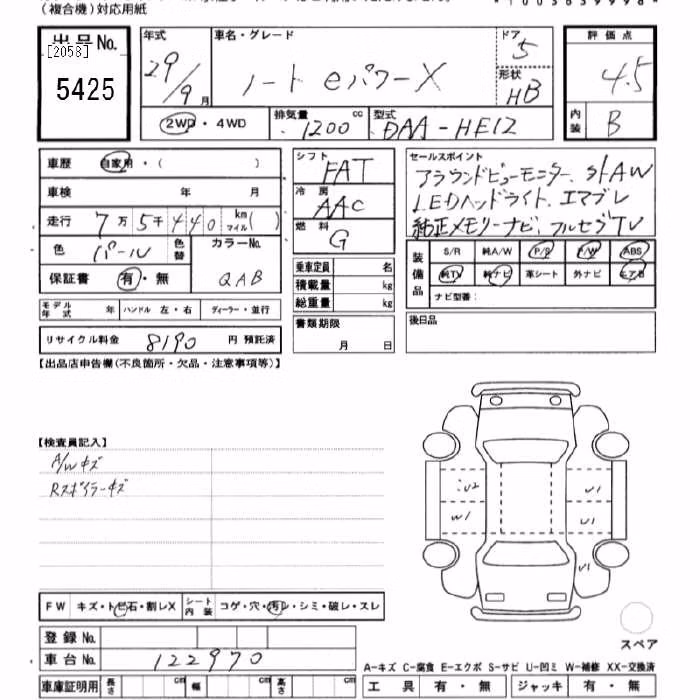 （複合機）対応用紙
出品No.
[2058]
5425
年式 29/9 月
車名・グレード
ノート eパワーX
ドア 5
形状 HB
2WD・4WD
排気量 1200 cc
型式 DAA-HE12
評価点
4.5
内装 B
車歴 自家用・( )
車検 年 月
走行 7万5千440 km マイル( )
色 パール 色替 カラーNo.
QAB
保証書 有・無
モデル年式 年 ハンドル 左・右 ディーラー・並行
リサイクル料金 8190 円 預託済
シフト FAT
冷房 AAC
燃料 G
乗車定員 名
積載量 kg
総重量 kg
書類期限
月 日
セールスポイント
アラウンドビューモニター、S/AW
LEDヘッドライト、エマブレ
純正メモリーナビ、フルセグTV
装備品
S/R 純A/W P/S P/W ABS
純TV 純ナビ 革シート 外ナビ エアB
ナビ型番：
後日品
【出品店申告欄(不良箇所・欠品・注意事項等)】
【検査員記入】
A/Wキズ
Rスポイラーキズ
U2 U1
W1 U1
U1
FW キズ・トビ石・割レX シート内装 コゲ・穴・汚レ・シミ・破レ・スレ
スペア
登録No.
車台No. 122970
A-キズ C-腐食 E-エクボ S-サビ U-凹ミ W-補修 XX-交換済
車庫証明用 長さ cm 幅 cm 高さ cm
工具 有・無 ジャッキ 有・無